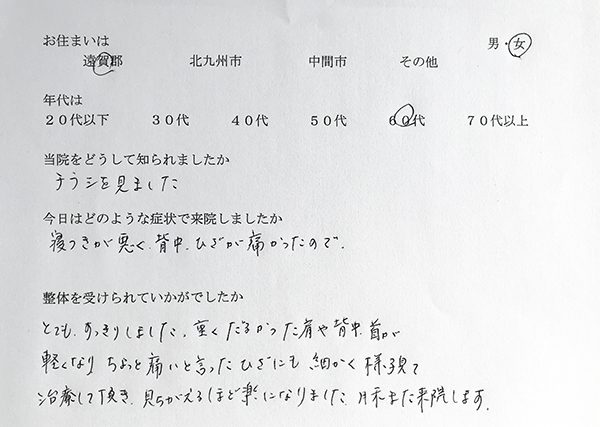 お住まいは 男・女
遠賀郡 北九州市 中間市 その他
年代は
20代以下 30代 40代 50代 60代 70代以上
当院をどうして知られましたか
チラシを見ました
今日はどのような症状で来院しましたか
寝つきが悪く、背中、ひざが痛かったので、
整体を受けられていかがでしたか
とても、すっきりしました。重くだるかった肩や背中、首が
軽くなり ちょっと痛いと言った ひざにも 細かく 様子見て
治療して頂き、見ちがえるほど楽になりました。また来院します。